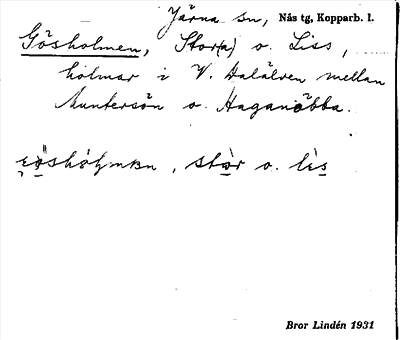 Järna sn, Nås tg, Kopparb. l.
Gösholmen, Stor(a) o. Liss,
holmar i V. Dalälven mellan
Muntersön o. Haganäbba.
stòr o. lìs
Bror Lindén 1931